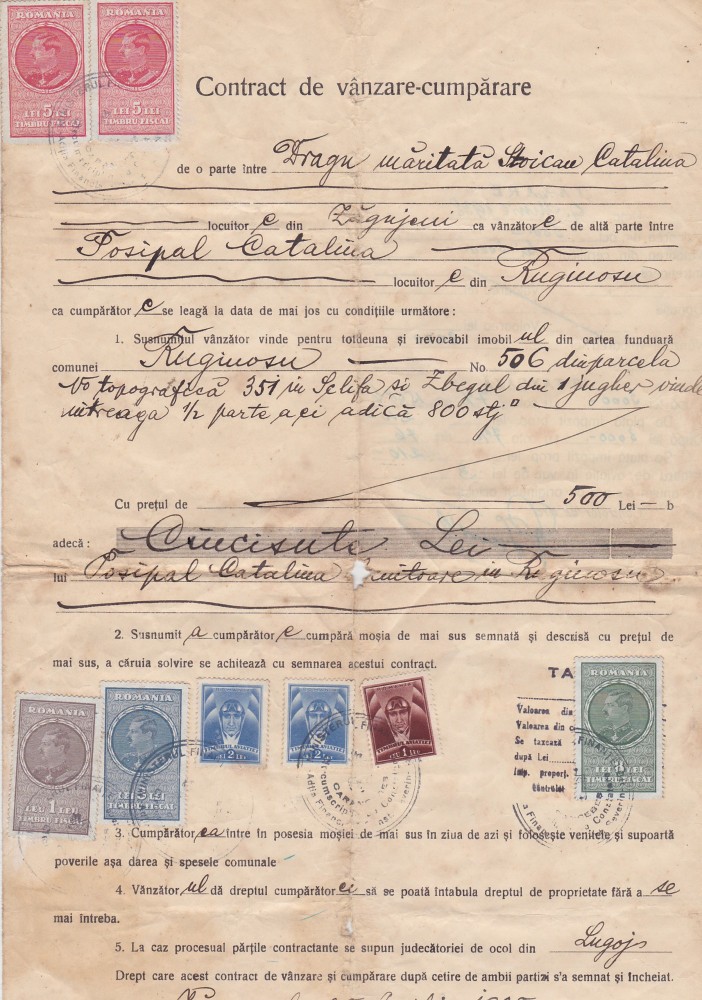 ROMANIA ROMANIA
LEI 5 LEI LEI 5 LEI
TIMBRU FISCAL TIMBRU FISCAL
Contract de vânzare-cumpărare
de o parte între Dragu măritată Stoican Catalina
locuitor e din Zăgujeni ca vânzător e de altă parte între
Posipal Catalina
locuitor e din Ruginosu
ca cumpărător e se leagă la data de mai jos cu condițiile următore :
1. Susnumitul vânzător vinde pentru totdeuna și irevocabil imobil ul din cartea funduară
comunei Ruginosu No 506 din parcela
No topografică 351 in Selifa si Zbegul din 1 jugher vinde
intreaga 1/2 parte a ei adică 800 stj
Cu prețul de 500 Lei — b
adecă : Cincisute Lei
lui Posipal Catalina in Ruginosu
2. Susnumit a cumpărător e cumpără moșia de mai sus semnată și descrisă cu prețul de
mai sus, a căruia solvire se achitează cu semnarea acestui contract.
TA
Valoarea din
Valoarea din
Se taxează
după Lei
Imp. proporț.
Controlor
ROMANIA
LEU 1 LEU
TIMBRU FISCAL
ROMANIA
TIMBRU FISCAL
TIMBRUL AVIATIEI
LEI 2 LEI
TIMBRUL AVIATIEI
LEI 2 LEI
TIMBRUL AVIATIEI
LEU 1 LEU
ROMANIA
TIMBRU FISCAL
3. Cumpărător ea între în posesia moșiei de mai sus în ziua de azi și folosește venitele și supoartă
poverile așa darea și spesele comunale
4. Vânzător ul dă dreptul cumpărător ei să se poată întabula dreptul de proprietate fără a se
mai întreba.
5. La caz procesual părțile contractante se supun judecătoriei de ocol din Lugoj
Drept care acest contract de vânzare și cumpărare după cetire de ambii partizi s'a semnat și încheiat.